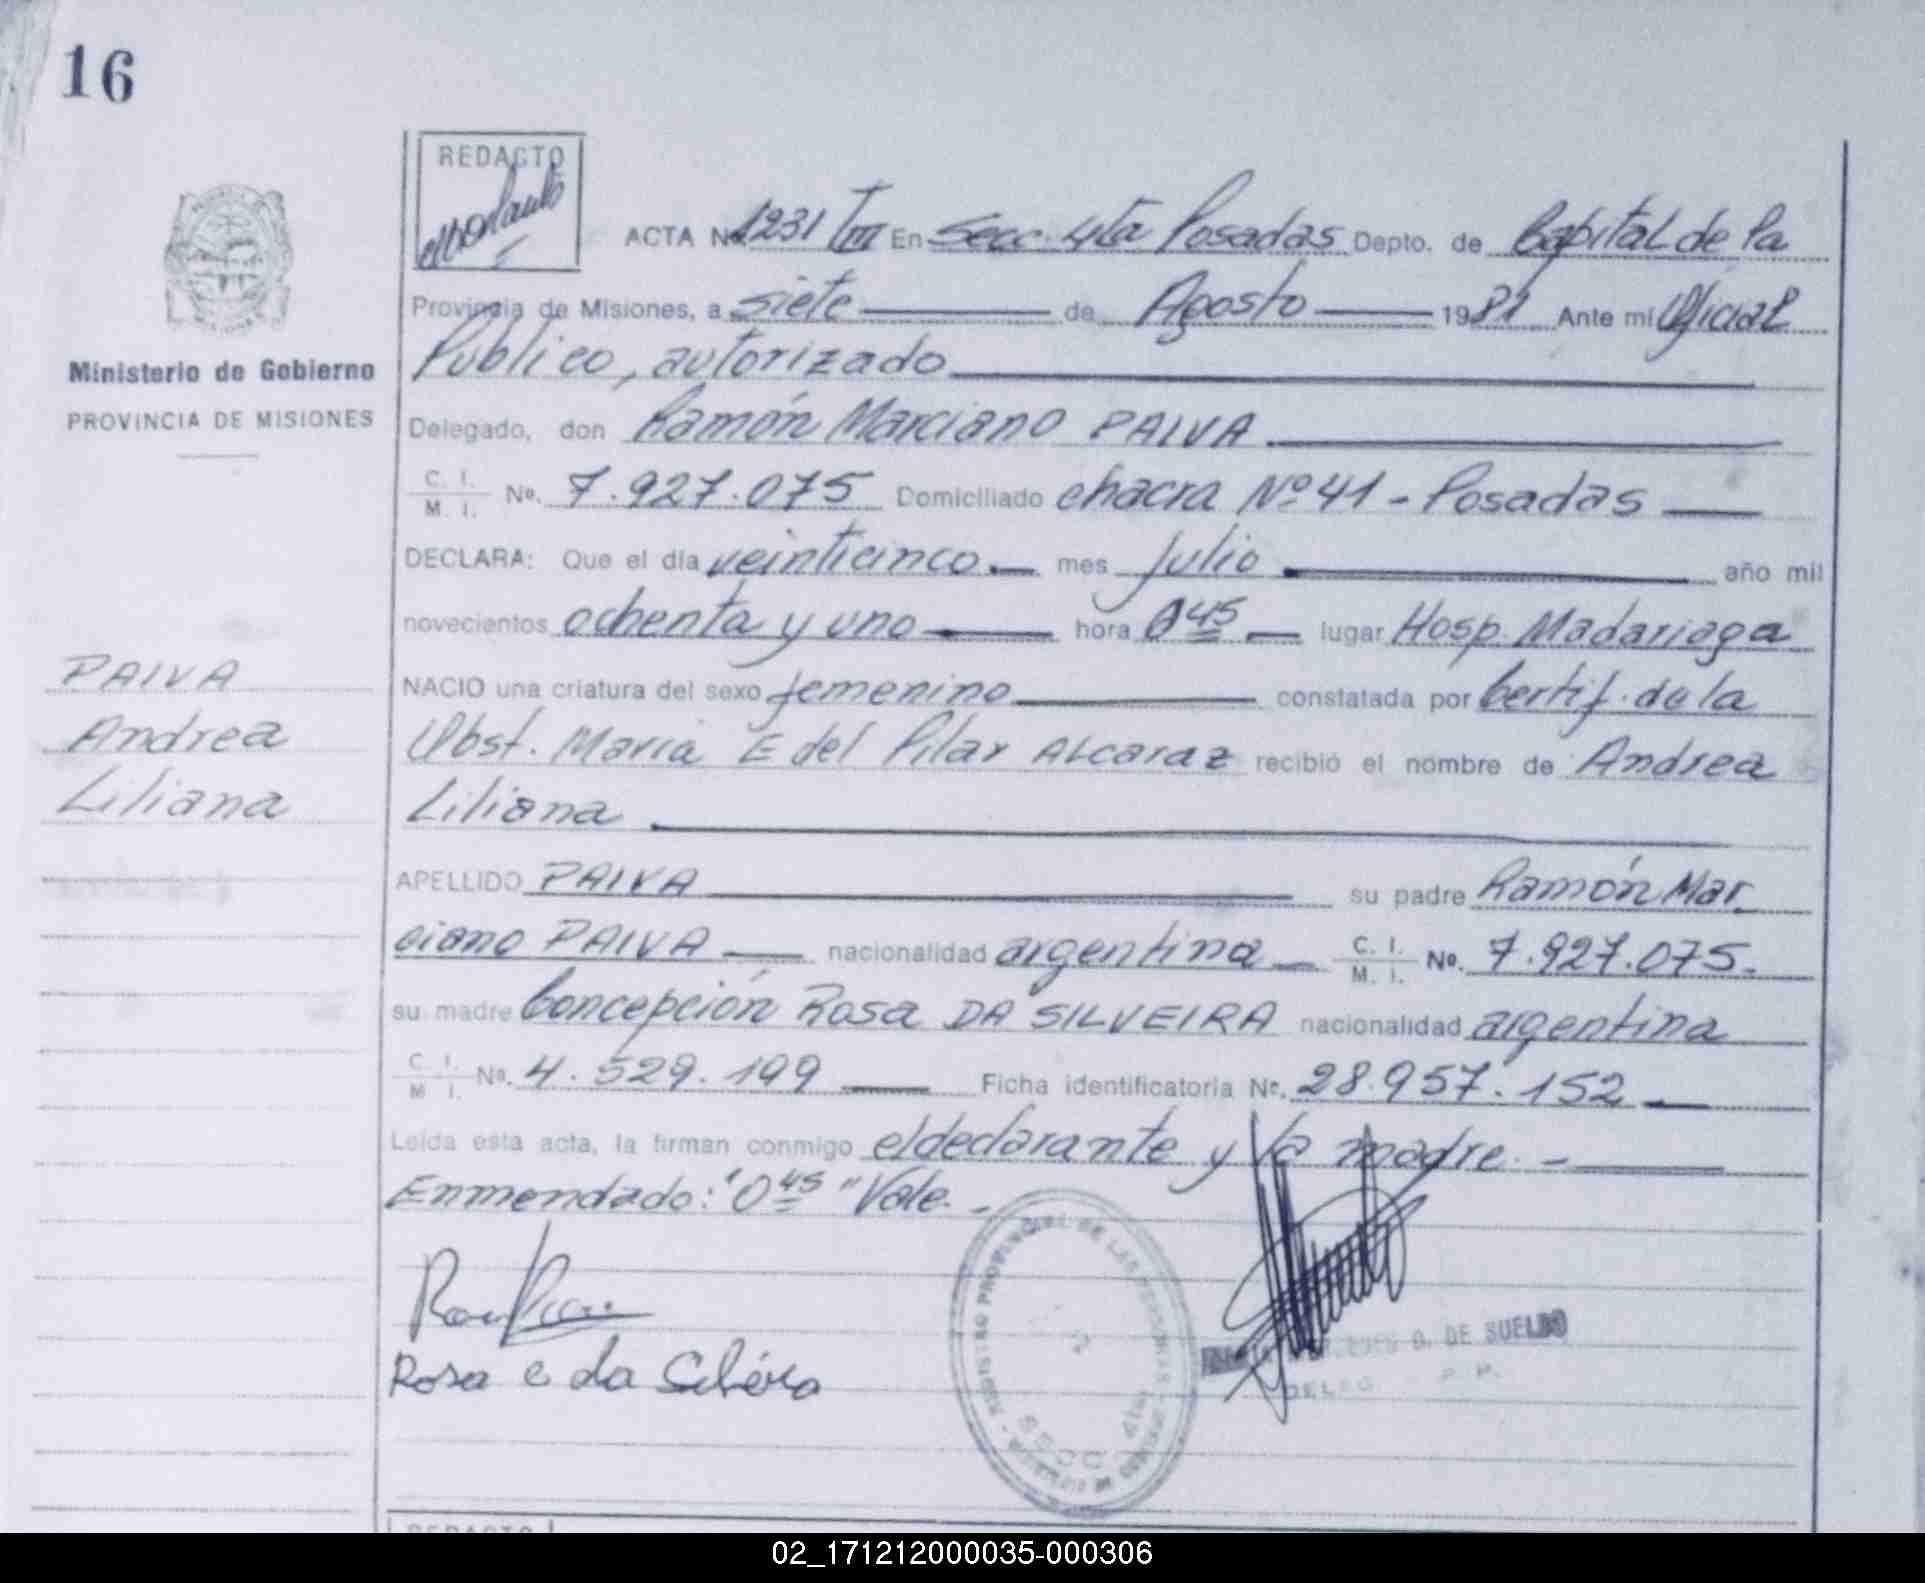 16
REDACTO
ACTA No. 1231 TIII En Secc. 4ta Posadas Depto. de Capital de la
Provincia de Misiones, a siete de Agosto 1981 Ante mi Oficial
Ministerio de Gobierno
PROVINCIA DE MISIONES
Público, autorizado
Delegado, don Ramón Marciano PAIVA
C. I. M. I. No. 7.927.075 Domiciliado chacra Nº 41 - Posadas
DECLARA: Que el día veinticinco mes Julio año mil
novecientos ochenta y uno hora 0 45 lugar Hosp. Madariaga
PAIVA
Andrea
Liliana
NACIO una criatura del sexo femenino constatada por Certif. de la
Obst. Maria E del Pilar ALCARAZ recibió el nombre de Andrea
Liliana
APELLIDO PAIVA su padre Ramón Mar
ciano PAIVA nacionalidad argentina C. I. M. I. No. 7.927.075.
su madre Concepción Rosa DA SILVEIRA nacionalidad argentina
C. I. M I. No. 4.529.199 Ficha identificatoria No. 28.957.152
Leída esta acta, la firman conmigo el declarante y la madre. -
Enmendado: "0 45" Vale. -
Rosa c da Silveira
REGISTRO PROVINCIAL DE LAS PERSONAS
SECC 4ta
D. DE SUELDO
DELEG.
REDACTO
02_171212000035-000306